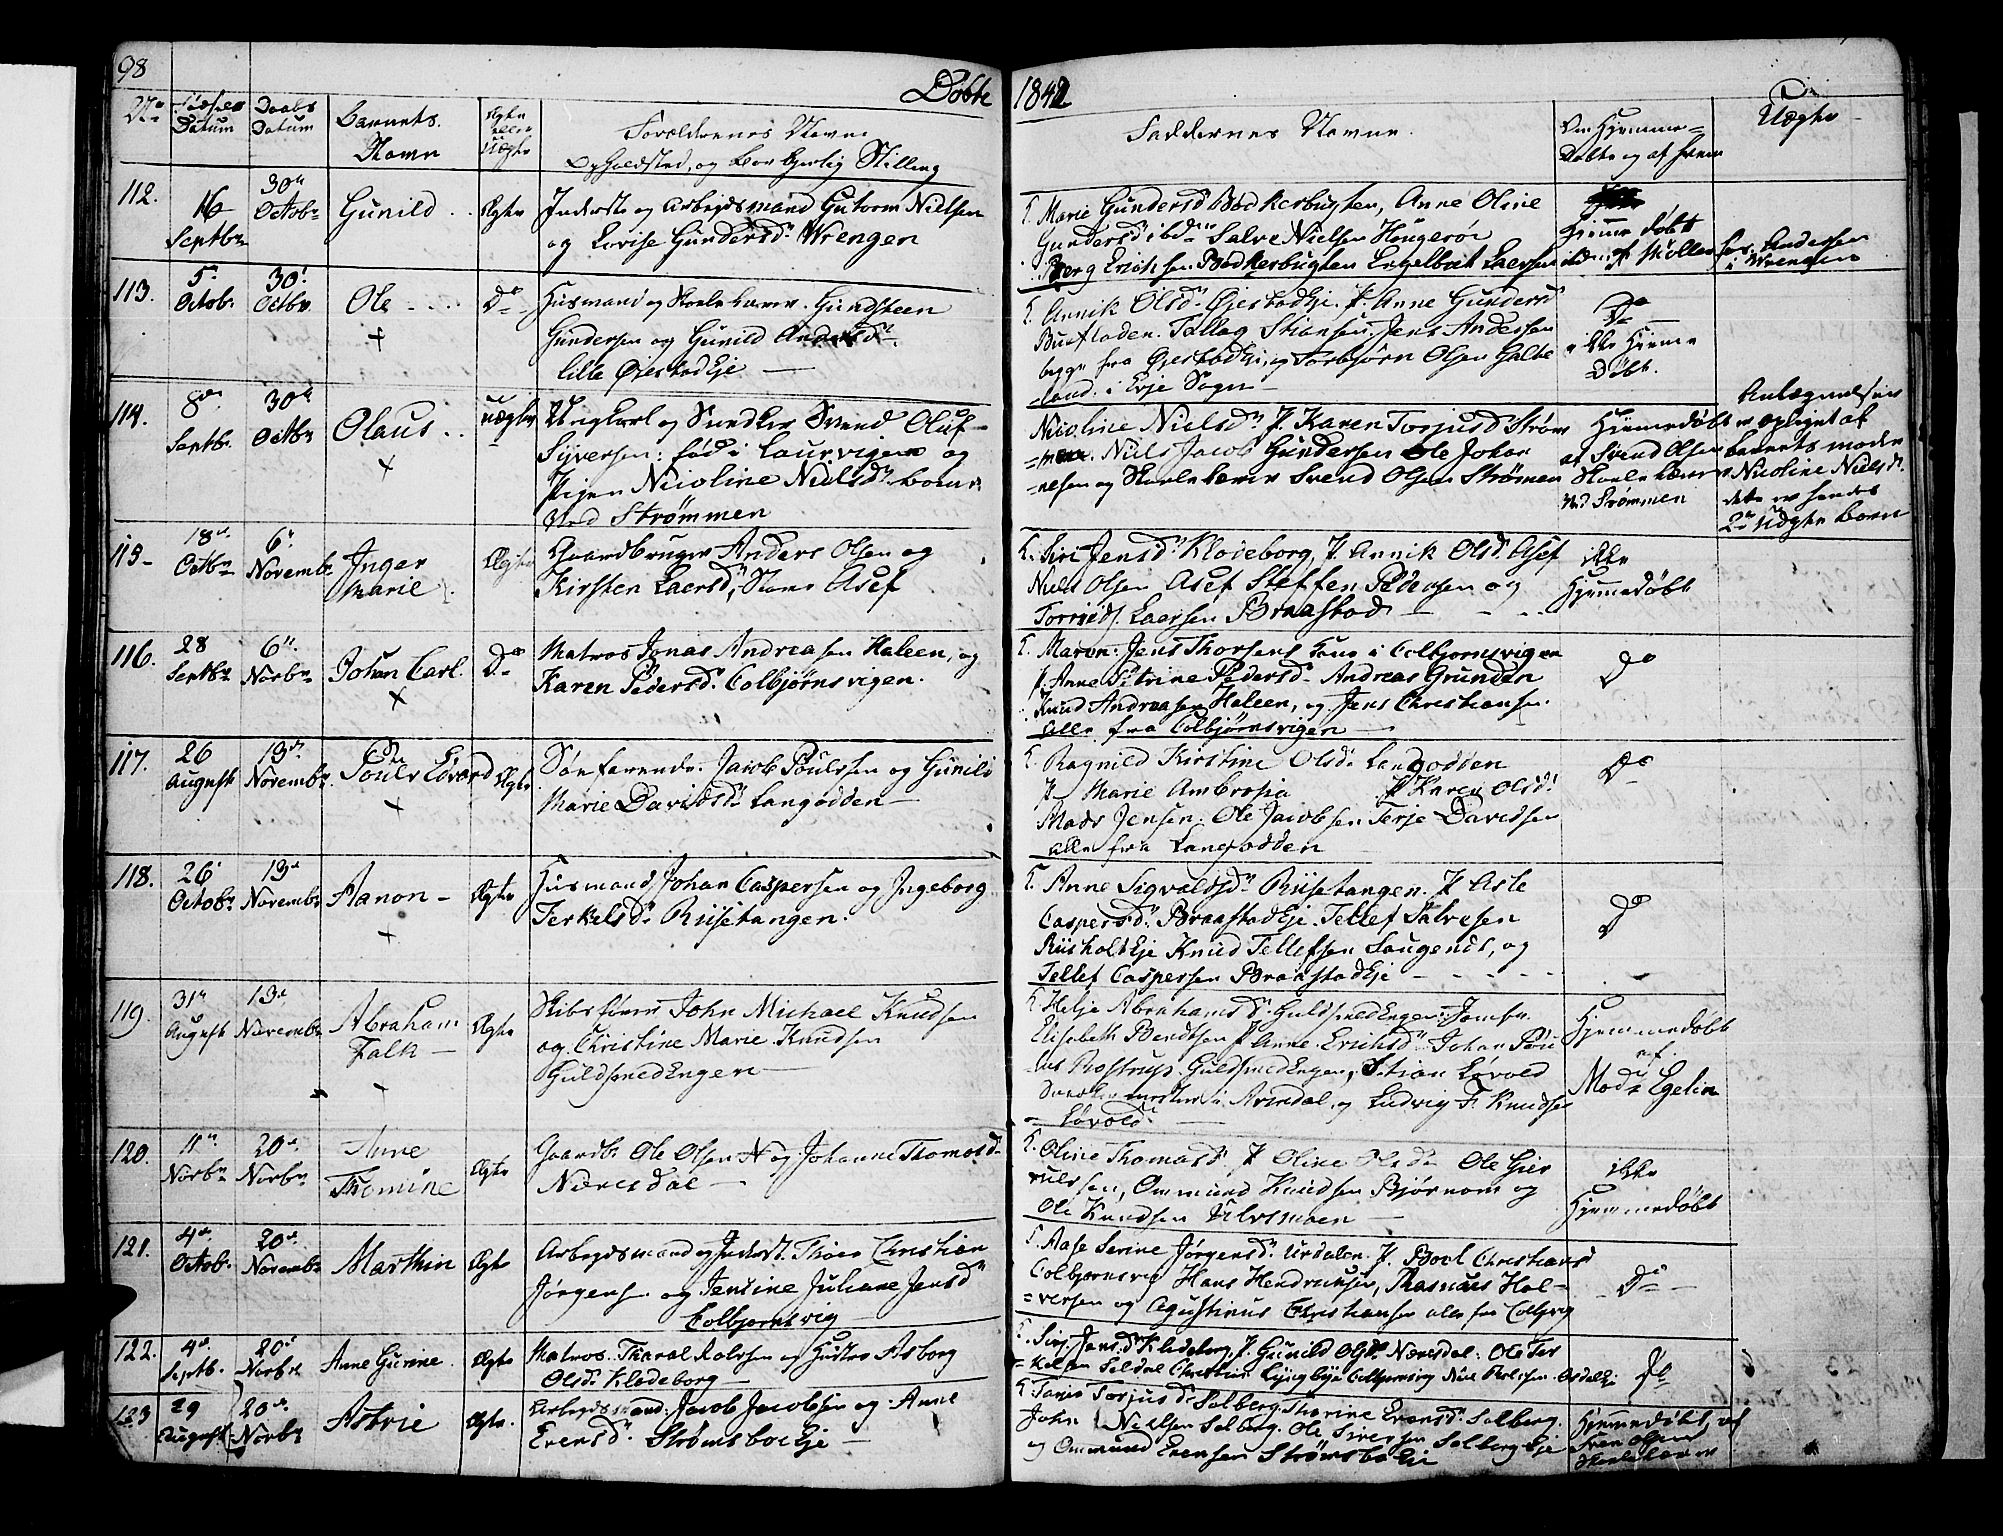 98
Døbte 1842
No Fødsels Datum
Daabs Datum
Barnets Navn
Ægte eller Uægte
Forældrenes Navne
Opholdsted, og Borgerlig Stilling
Faddernes Navne.
Om Hjemme=
Døbte og af hvem
Uægte
112.
16 Septbr
30te Octobr
Gunild
Ægte
Inderste og Arbejdsmand Gutorm Nielsen
og Lovise Gundersd. Wrengen
Marie Gundersd Bødkerbugten, Anne Oline
Gundersd ibd. Salve Nielsen Hougerøe
Berg Erichsen Bødkerbugten Engelbret Laersen
Hjemme døbt
af Møller Andersen
Wrengen
113.
5. Octobr
30. Octbr
Ole
+
Do
Husmand og Skolelærer Gundsteen
Gundersen og Gunild Andersd.
lille Øiestad Eje
Annik Olsd. Øiestad Eje. P. Anne Gundersd
Buefladen. Tellag Stiansen. Jens Andersen
begge fra Øiestad Eje, og Torbjørn Olsen Galte
=land i Evje Sogn
Do
ikke Hjemme
Døbt.
114.
8de Septbr.
30te Octbr
Olaus
+
Uægte
Ungkarl og Svend Oluf
Syversen: fød i Laurvigen og
Pigen Nicoline Nielsd.
Ved Strømmen
Nicoline Nielsd. P. Karen Torjusd Strøm
=men. Niels Jacob Gundersen Ole Johan
=nesen og Skolelærer Svend Olsen Strømen
Hjemmedøbt
af Svend Olsen
Skolelærer
Ved Strømmen
opgivet af
barnets moder
Nicoline Nielsd.
dette er hendes
2det Uægte barn
115
18de Octbr
6te Novembr
Inger
Marie
Ægte
Gaardbruger Anders Olsen og
Kirsten Laersd, Store Asef
Siri Jensd. Klodeborg, P. Annik Olsd. Asef
Niels Olsen Asef Steffen Pedersen og
Laersen Braastad
ikke
Hjemmedøbt
116.
28 Septbr
6te Novbr
Johan Carl.
+
Do
Matros Jonas Andreasen Haleen, og
Karen Pedersd. Colbjørnsvigen.
Maren Jens Thorsens Kone i Colbjornsvigen
P. Anne Petrine Pedersd. Andreas Grunden
Knud Andreasen Haleen, og Jens Christiansen
Alle fra Colbjørnsvigen
Do
117.
26 August
13de Novembr
Poule Edvard
+
Ægte
Søefarende Jacob Poulssen og Gunild
Marie Davidsd. Langødden
Ragnild Kirstine Olsd. Langodden
P. Marie Ambrosia P. Karen Olsd.
Mads Jensen. Ole Jacobsen Terje Davidsen
alle fra Langødden
Do
118.
26 Octobr
13de Novembr
Aanon
+
Ægte
Husmand Johan Caspersen og Ingeborg
Terkelsd. Risetangen.
Anne Sigvaldsd. Risetangen. P. Asle
Caspersd. Braastad Eje Tellef Salvesen
Riisholt Eje Knud Tellefsen Saugende, og
Tellef Caspersen Braastad Eje
Do
119.
31te August
13de Novembr
Abraham
Falk
+
Ægte
Skibsfører John Michael Knudsen
og Christine Marie Knudsen
Guldsmedengen
Helje Abrahamsd. Guldsmedengen: Jomfru
Elisabeth Bendtsen P. Anne Erichsd. Johan
Rostrup Guldsmedengen, Stian Løvold
i Arendal og Ludvig F. Knudsen
Løvold
Hjemmedøbt
af
Mad. Egelin
120.
11te Novbr
20de Novbr
Anne
Thomine
Ægte
Gaardbr. Ole Olsen og Johanne Thomasd.
Næresdal
Oline Thomasd. P. Oline Olsd. Ole Gier
=ulssen, Ommund Knudsen Bjørnom og
Ole Knudsen Ulvsmoen
ikke
Hjemmedøbt
121.
4de Octob.
20de Novembr
Marthin
Ægte
Arbejdsmand og Inderst. Thoer Christian
Jørgens. og Jensine Juliane Jensd.
Colbjornsvig
Aase Serine Jørgensd. Urdalen. P. Boel Christians
Colbjornsvig Hans Hendricksen, Rasmus Hal=
=versen og Agustinus Christiansen alle fra Colbjvig
Do
122.
4de Septb.
20de Novbr
Anne Gurine
Ægte
Matros Tharal Rolvsen og Hustro Asborg
Olsd. Klodeborg
Siri Jensd. Klodeborg, P. Gunild Olsd. Næresdal. Ole Ter
=kelsen Seldal Christian Lyngbye Colbjornsvig
Do
123
29 August
20de Novbr
Astrie
Ægte.
Arbejdsmand: Jacob Jacobsen og Anne
Evensd. Strømsboe Eje
Torjusd. Solberg. Thorine Evensd. Solberg.
John Nielsen Solberg. Ole Siversen Solberg Eje
og Ommund Evensen Strømsbo Eje
Hjemmedøbt, ved
Sven Olsen
Skolelærer